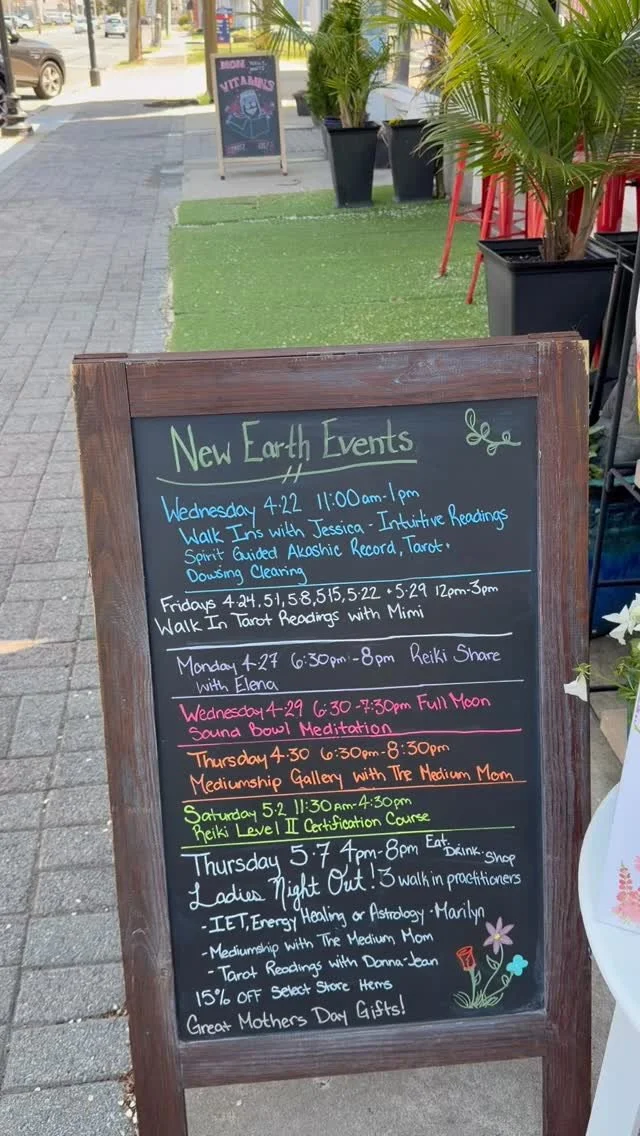 MOM
VITAMINS
New Earth Events
Wednesday 4·22 11:00am-1pm
Walk Ins with Jessica - Intuitive Readings
Spirit Guided Akashic Record, Tarot,
Dowsing Clearing
Fridays 4·24, 5·1, 5·8, 5·15, 5·22 + 5·29 12pm-3pm
Walk In Tarot Readings with Mimi
Monday 4·27 6:30pm-8pm Reiki Share
with Elena
Wednesday 4·29 6:30-7:30pm Full Moon
Sound Bowl Meditation
Thursday 4·30 6:30pm-8:30pm
Mediumship Gallery with The Medium Mom
Saturday 5·2 11:30am-4:30pm
Reiki Level II Certification Course
Thursday 5·7 4pm-8pm Eat·Drink·Shop
Ladies Night Out! 3 walk in practitioners
-IET, Energy Healing or Astrology - Marilyn
-Mediumship with The Medium Mom
-Tarot Readings with Donna-Jean
15% OFF Select Store Items
Great Mothers Day Gifts!